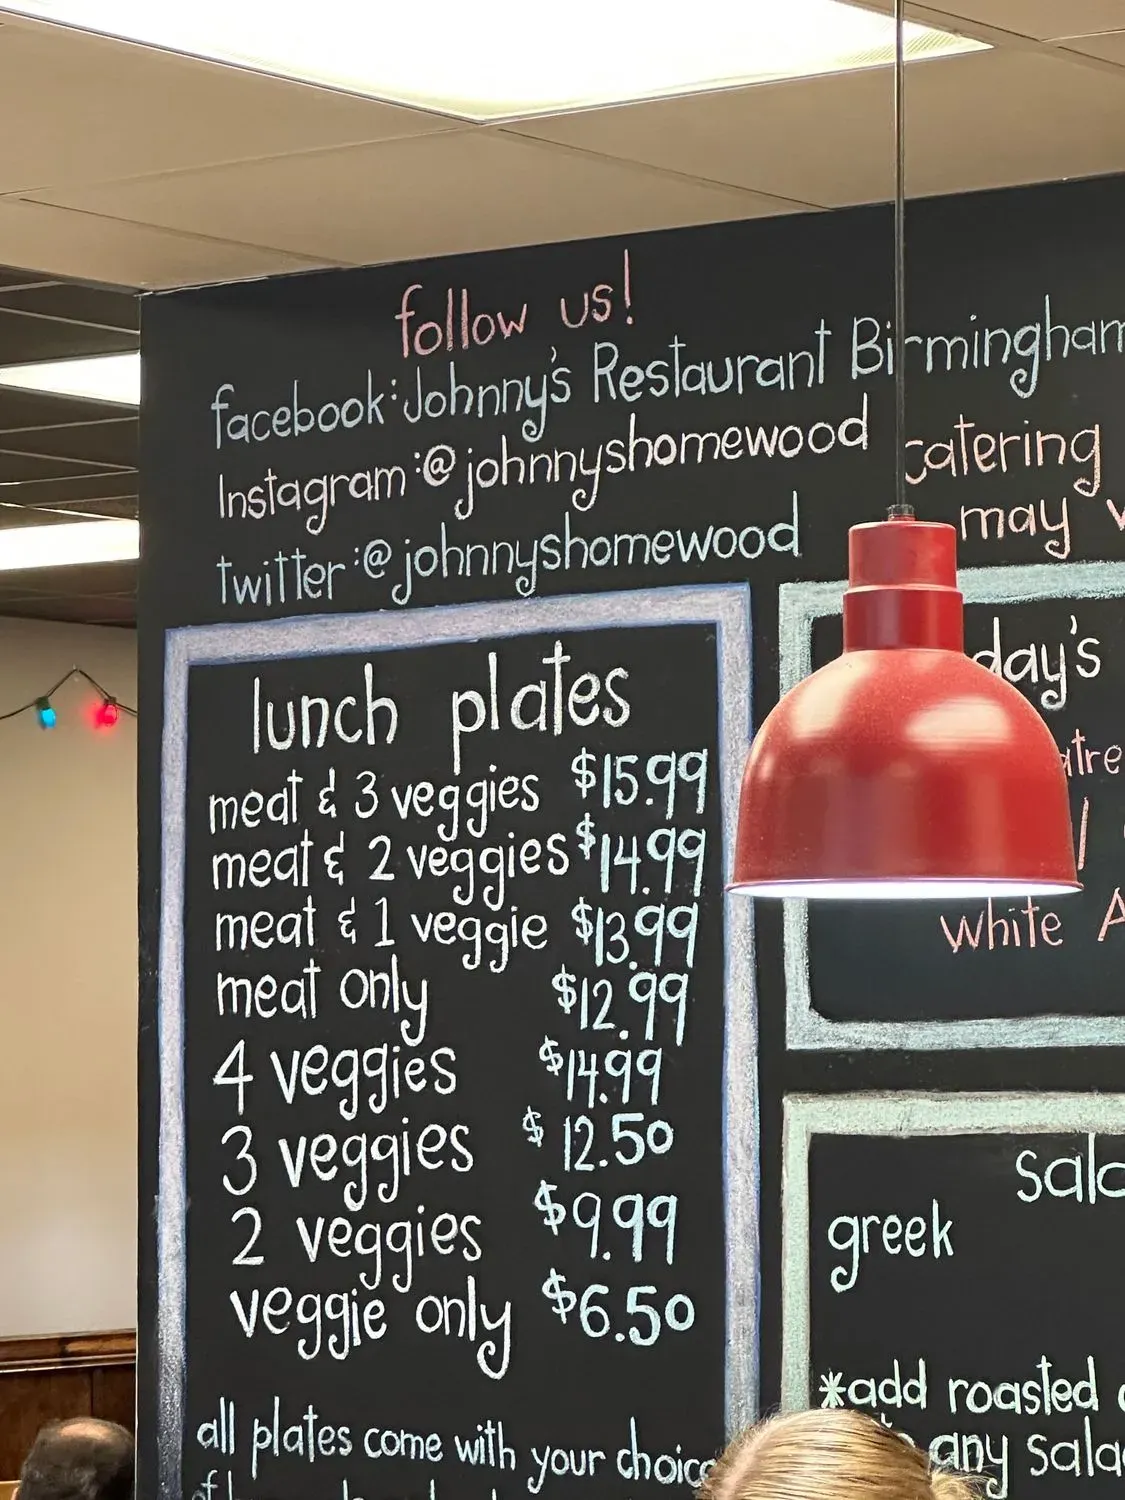 follow us!
facebook: Johnny's Restaurant Birmingham
Instagram: @johnnyshomewood
twitter: @johnnyshomewood
catering
may
lunch plates
meat & 3 veggies $15.99
meat & 2 veggies $14.99
meat & 1 veggie $13.99
meat only $12.99
4 veggies $14.99
3 veggies $12.50
2 veggies $9.99
veggie only $6.50
all plates come with your choice
day's
white
greek
*add roasted
any